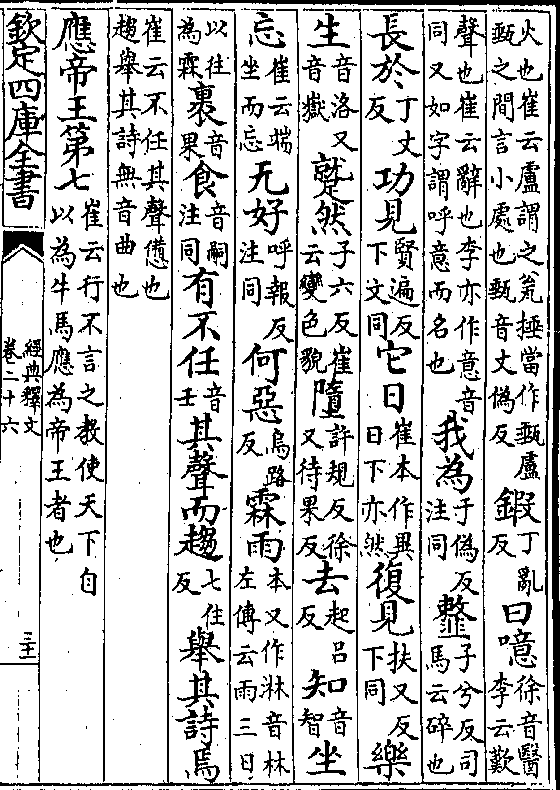 火也崔云盧謂之瓮捶當作甀盧甀之間言小處也甀音丈偽反鍜丁亂反曰噫徐音醫李云歎
聲也崔云辭也李亦作意音同又如字謂呼意而名也我為于偽反注同𩐎子兮反司馬云碎也
長於丁丈反功見賢遍反下文同它日崔本作異日下亦然復見扶又反下同樂
生音洛又音嶽蹵然子六反崔云變色貌墮許規反徐又待果反去起呂反知音智坐
忘崔云端坐而忘无好呼報反注同何惡烏路反霖雨本又作淋音林左傳云雨三日
以往為霖裹音果食音嗣注同有不任音壬其聲而趨七住反舉其詩焉
崔云不任其聲憊也趨舉其詩無音曲也
應帝王第七崔云行不言之教使天下自以為牛馬應為帝王者也
欽定四庫全書
經典釋文
卷二十六